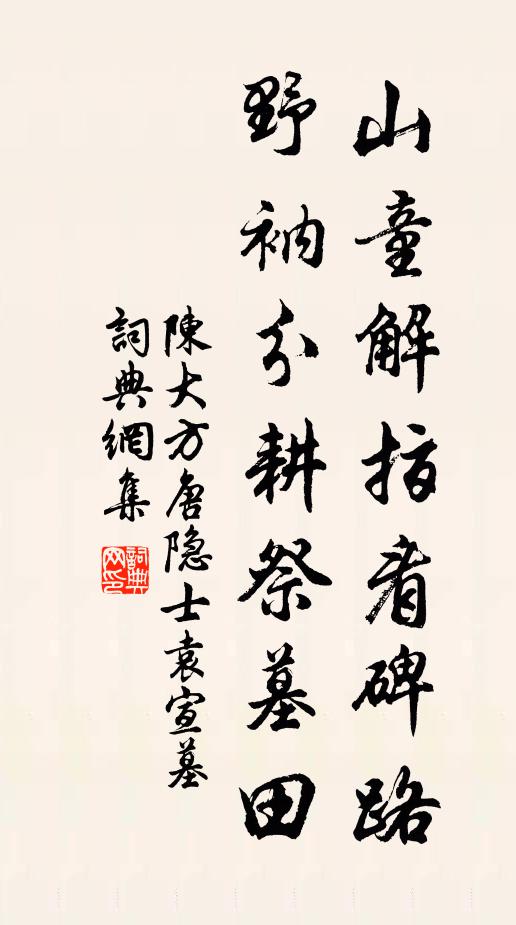 山童解指看碑路
野衲分耕祭墓田
陳大方唐隐士袁宣墓
詞典網集
詞典网印